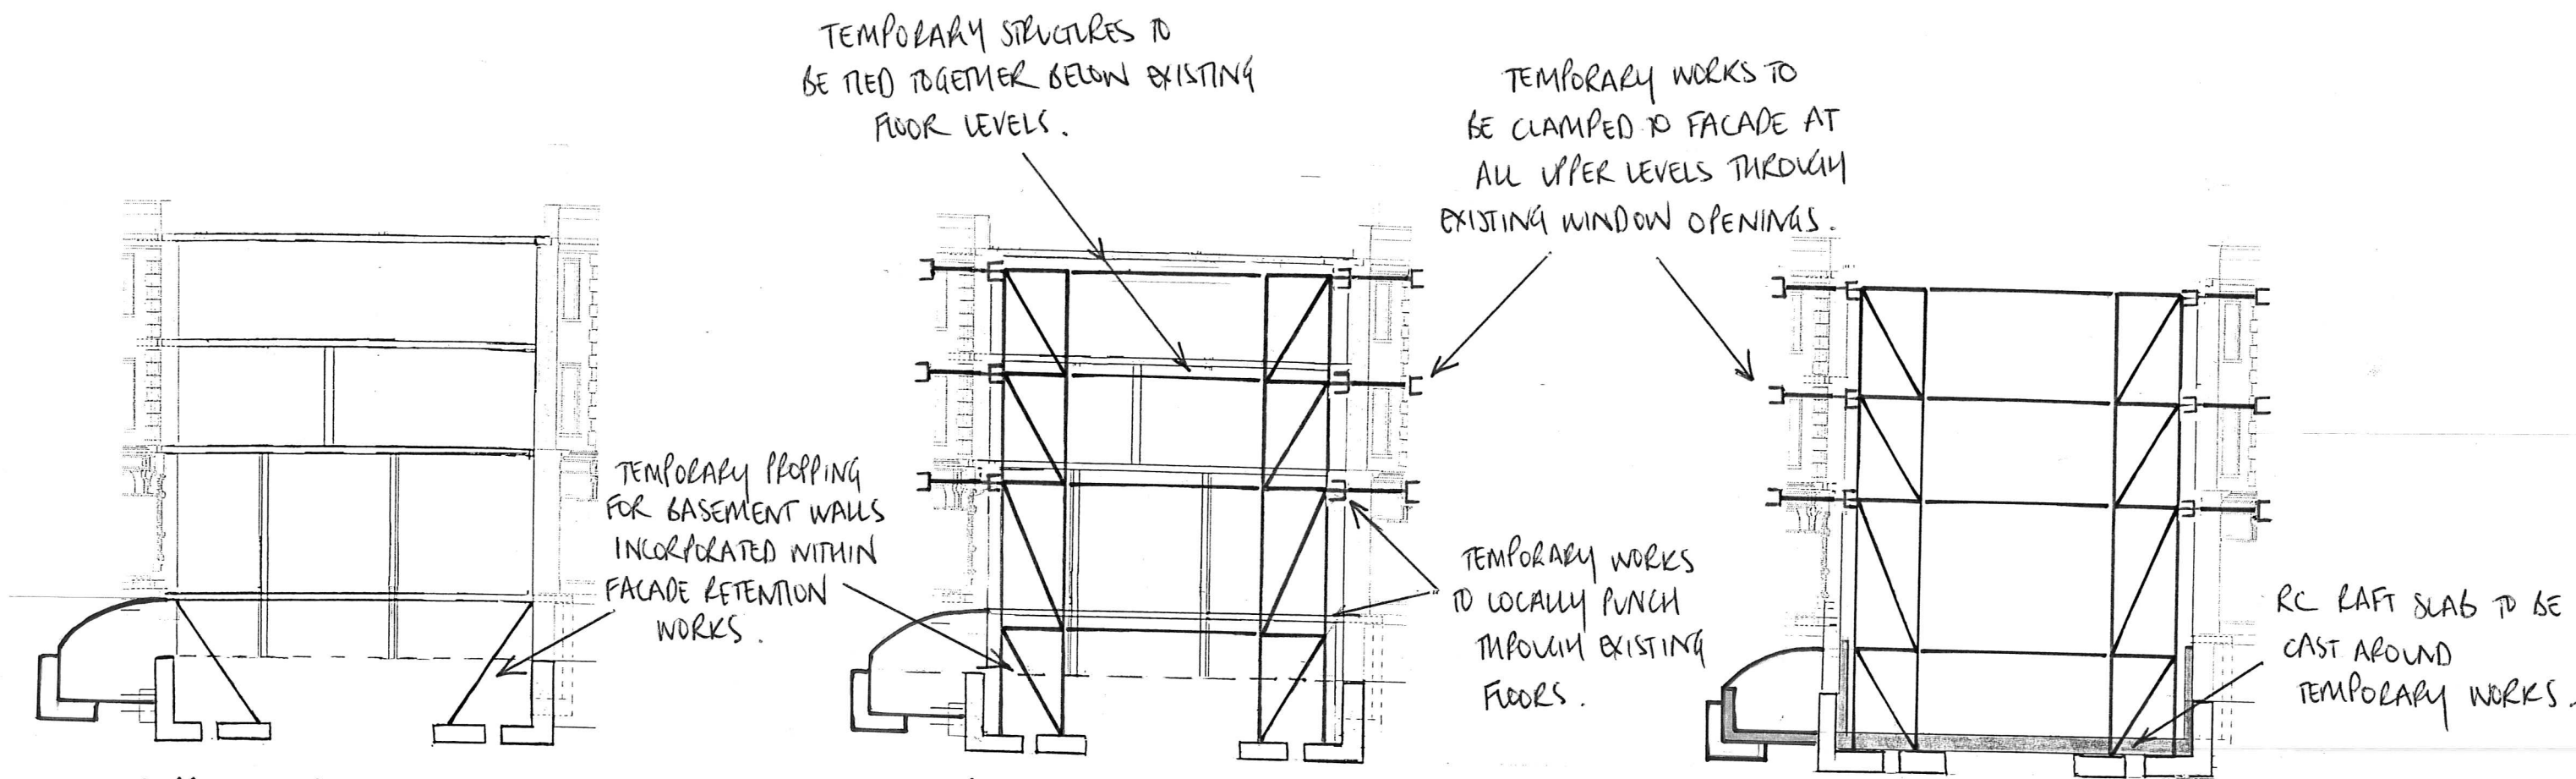 TEMPORARY STRUCTURES TO
BE TIED TOGETHER BELOW EXISTING
FLOOR LEVELS.
TEMPORARY WORKS TO
BE CLAMPED TO FACADE AT
ALL UPPER LEVELS THROUGH
EXISTING WINDOW OPENINGS.
TEMPORARY PROPPING
FOR BASEMENT WALLS
INCORPORATED WITHIN
FACADE RETENTION
WORKS.
TEMPORARY WORKS
TO LOCALLY PUNCH
THROUGH EXISTING
FLOORS.
RC RAFT SLAB TO BE
CAST AROUND
TEMPORARY WORKS.